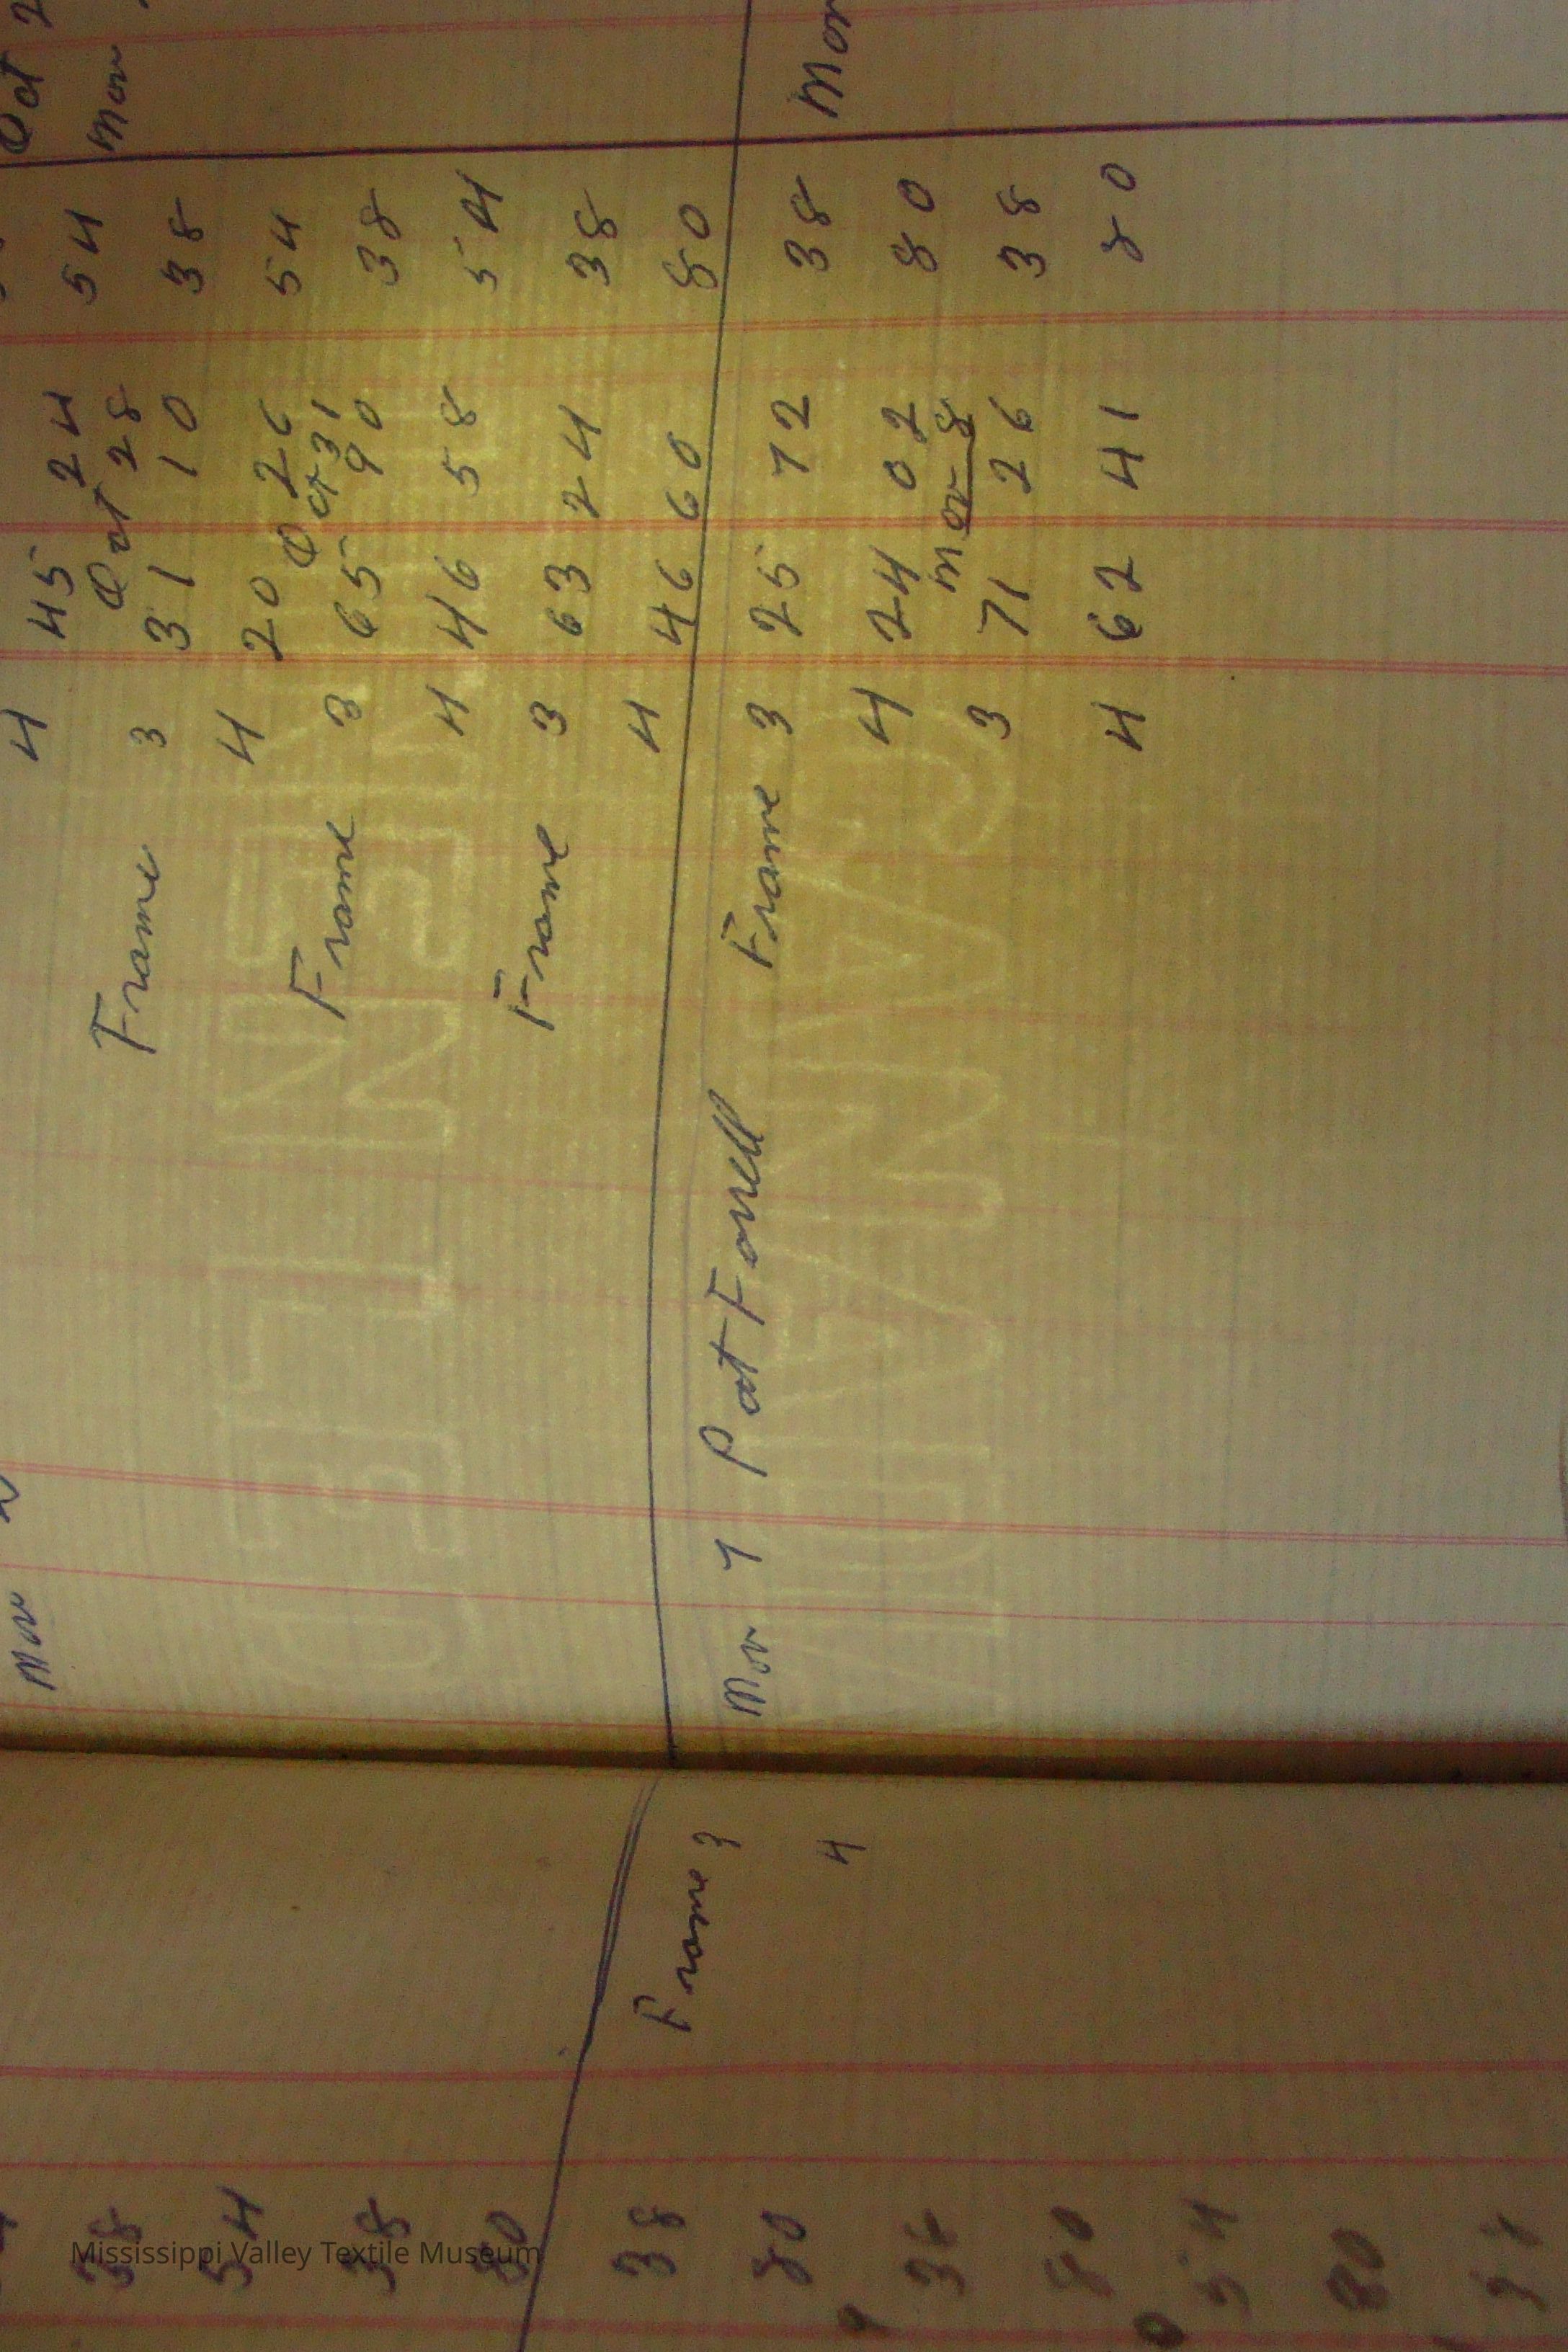 38
54
38
80
38 Frame 3
80 4
80
54
80
Nov
4 45 24 54 Oct 2
Oct 28 Nov
Frame 3 31 10 38
4 20 26 54
Oct 31
Frame 3 65 90 38
4 46 58 54
Frame 3 63 24 38
4 46 60 80
Nov 7 Pat Forrell Frame 3 25 72 38 Nov
4 24 02 80
Nov 8
3 71 26 38
4 62 41 80
Mississippi Valley Textile Museum